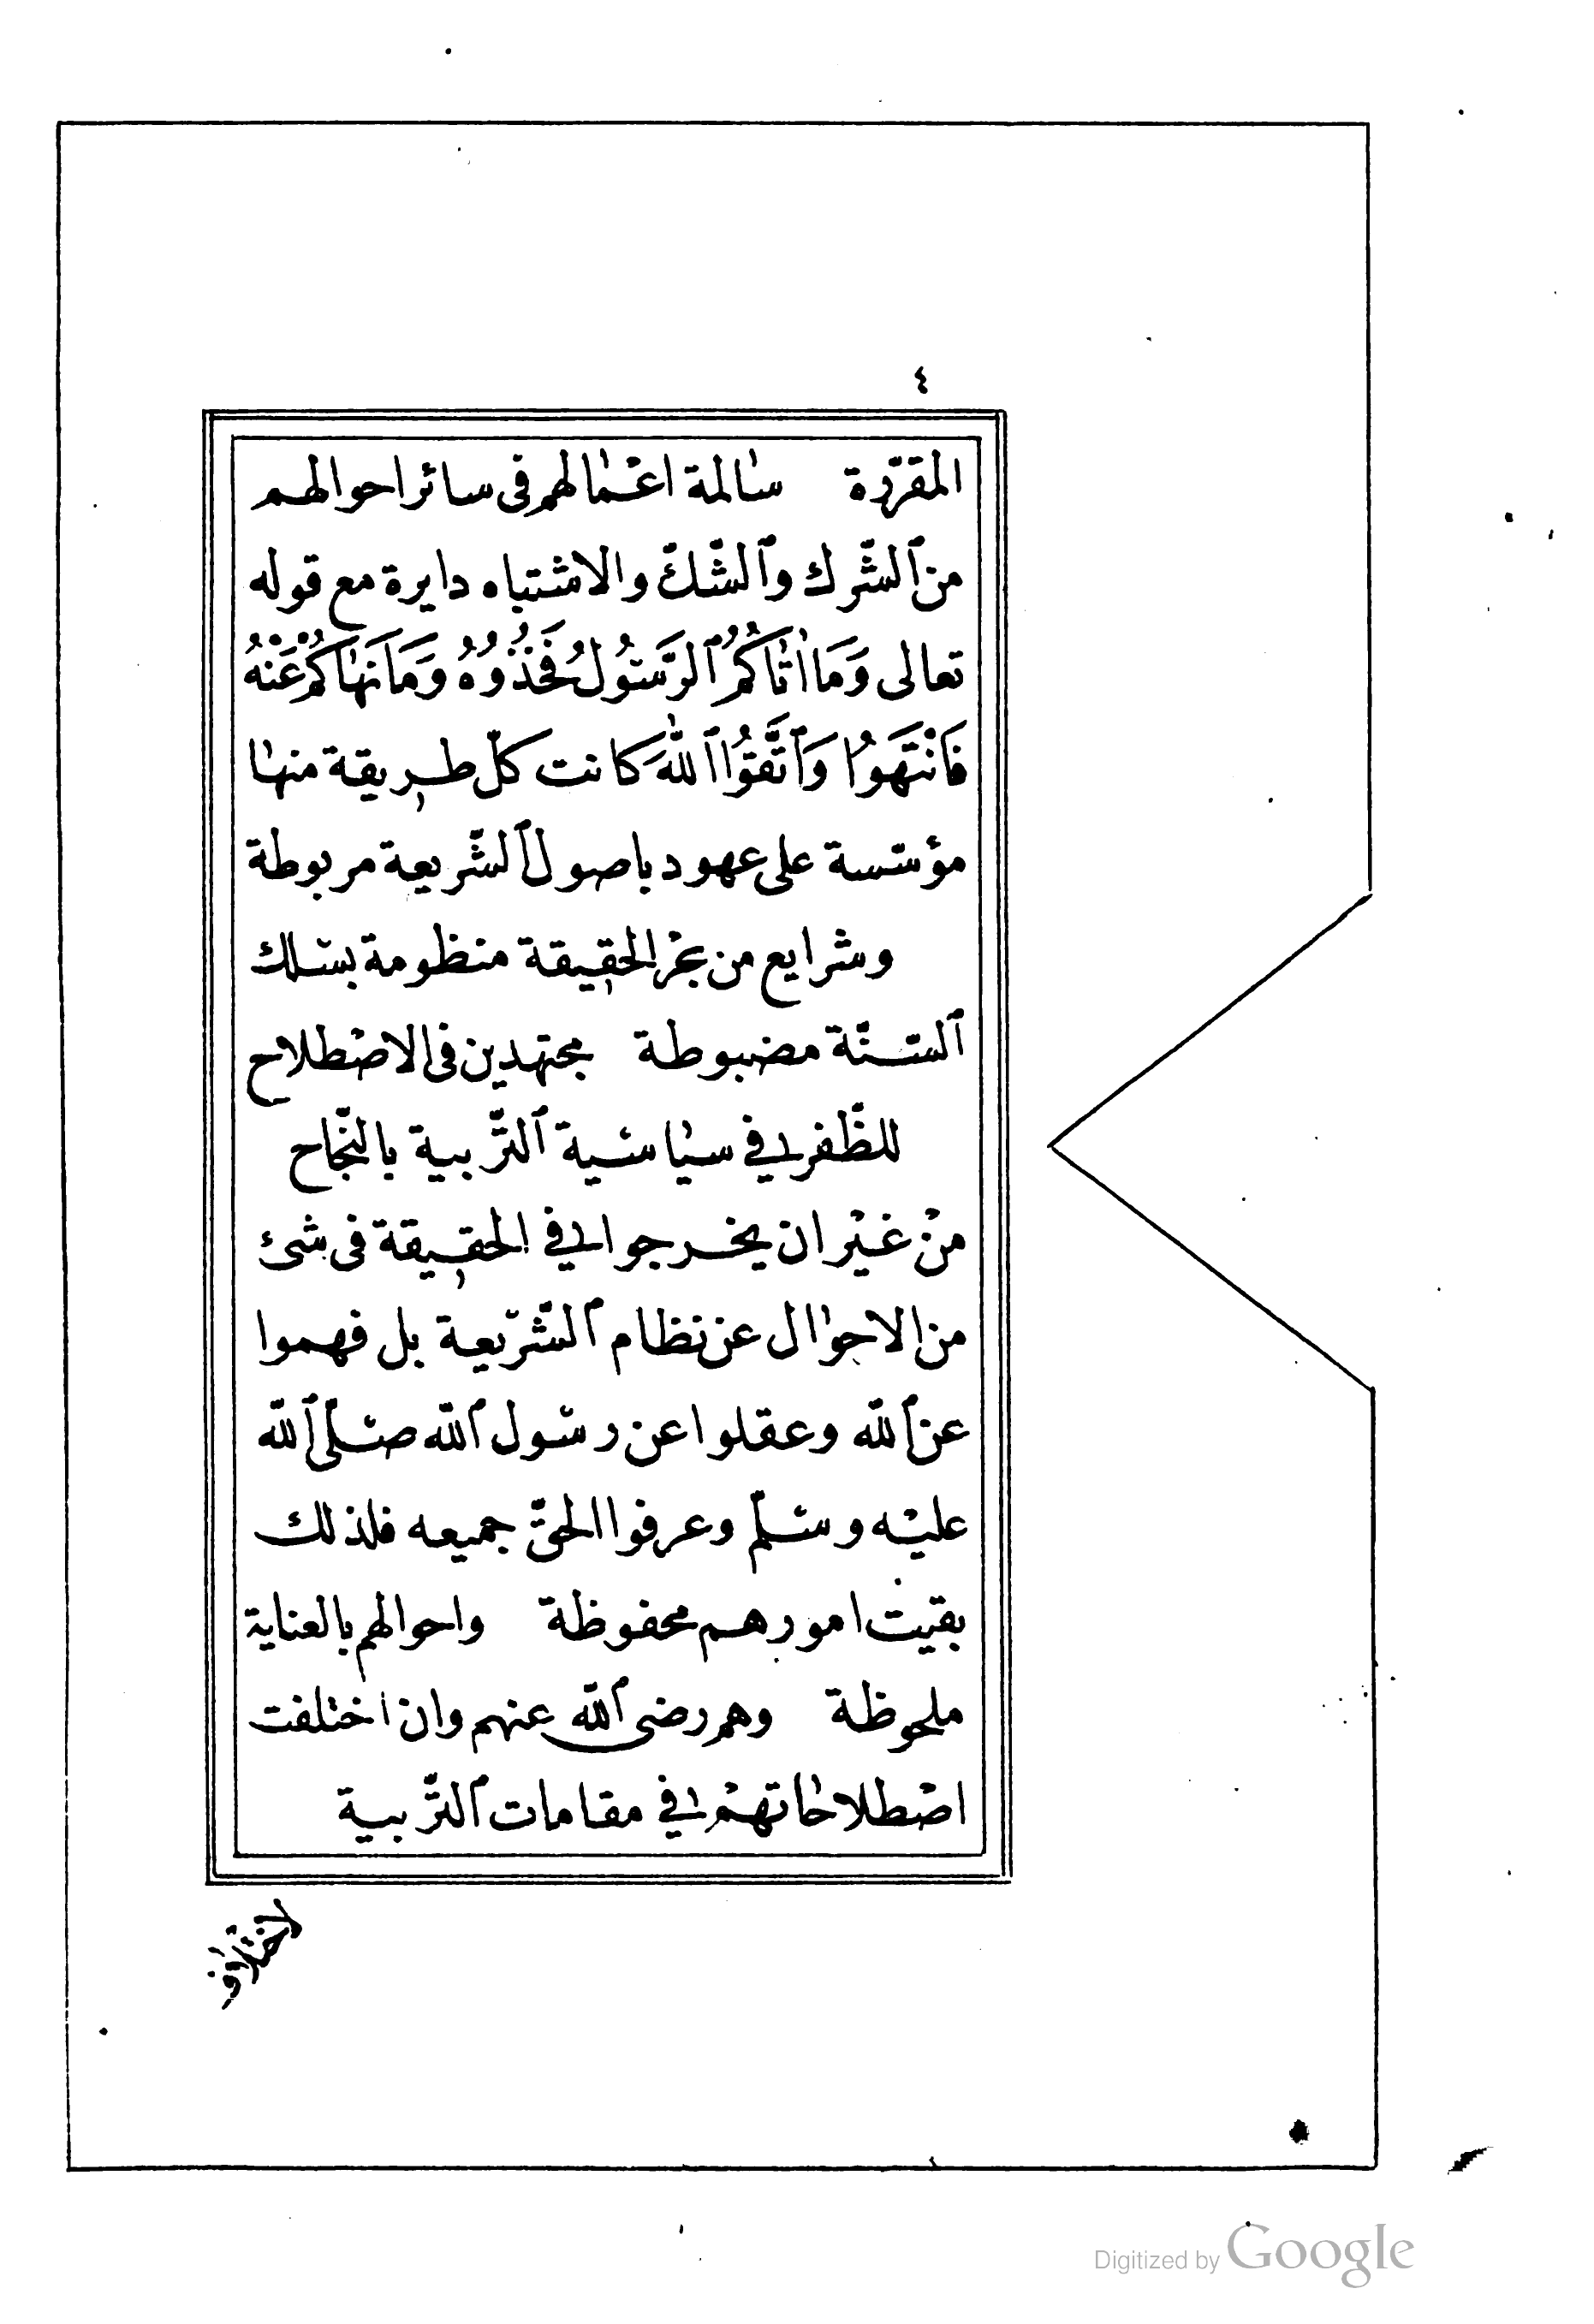 ٤
المقرّرة سالمة اعمالهم فى سائر احوالهم
من ٱلشّرك وٱلشّكّ والاشتباه دايرة مع قوله
تعالى وَمَا اٰتَاكُمُ ٱلرَّسُولُ فَخُذُوُهُ وَمَا نَهَاكُمْ عَنْهُ
فَانْتَهَوُا وَٱتَّقوُا ٱللّٰهَ كانت كلّ طريقة منها
مؤسّسة على عهود باصول ٱلشّريعة مربوطة
وشرايع من بحْر الحقيقة منظومة بسلك
ٱلسّنّة مضبوطة مجتهدين فى الاصْطلاح
للظّفر فى سياسية ٱلتّربية بالنّجاح
منْ غيْر ان يخرجوا فى الحقيقة فى شئ
من الاحوال عن نظام ٱلشّريعة بل فهموا
عن ٱللّه وعقلوا عن رسول ٱللّه صلّى ٱللّه
عليْه وسلّم وعرفوا الحقّ جميعه فلذلك
بقيت امورهم محفوظة واحوالهم بالعناية
ملحوظة وهم رضى ٱللّه عنهم وان اختلفت
اصْطلاحاتهمْ فى مقامات ٱلتّربية
لاختلاف
Digitized by Google